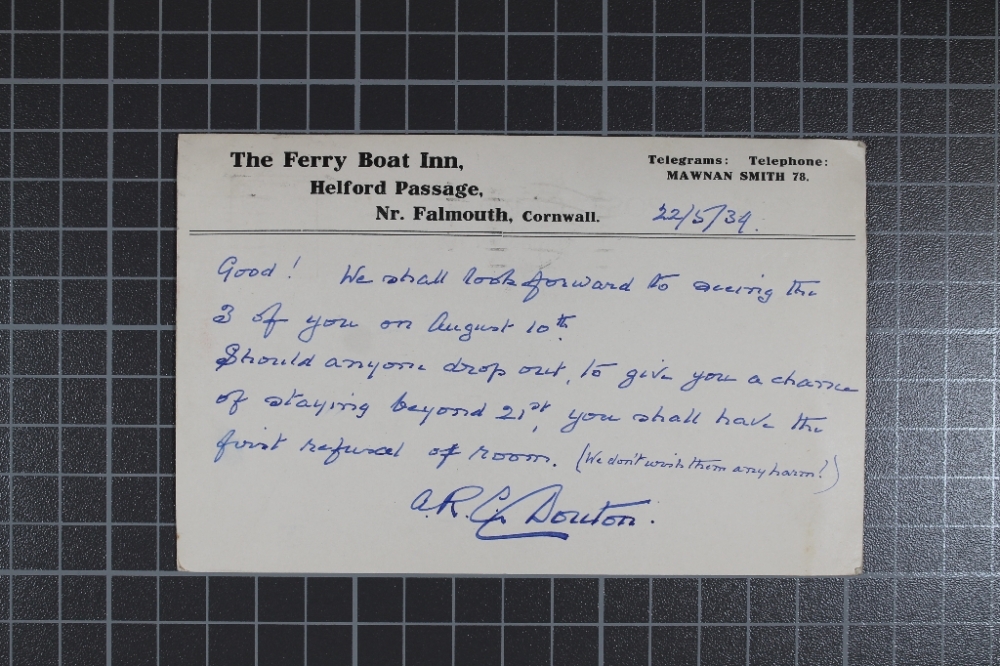 The Ferry Boat Inn,
Helford Passage,
Nr. Falmouth, Cornwall.
Telegrams: Telephone:
MAWNAN SMITH 78.
22/5/39.
Good! We shall look forward to seeing the
3 of you on August 10th.
Should anyone drop out, to give you a chance
of staying beyond 21st, you shall have the
first refusal of room. (We don't wish them any harm!)
A.R.G. Douton.